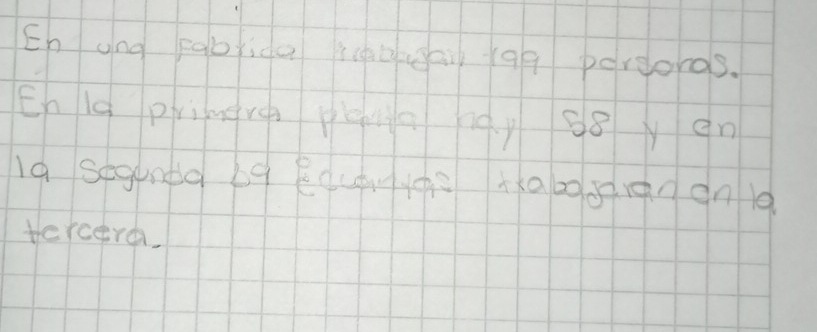 En una Fabrica trabajan 199 personas.
En la primera planta hay 58 y en
la segunda 69 ¿cuantas trabajaran en la
tercera.